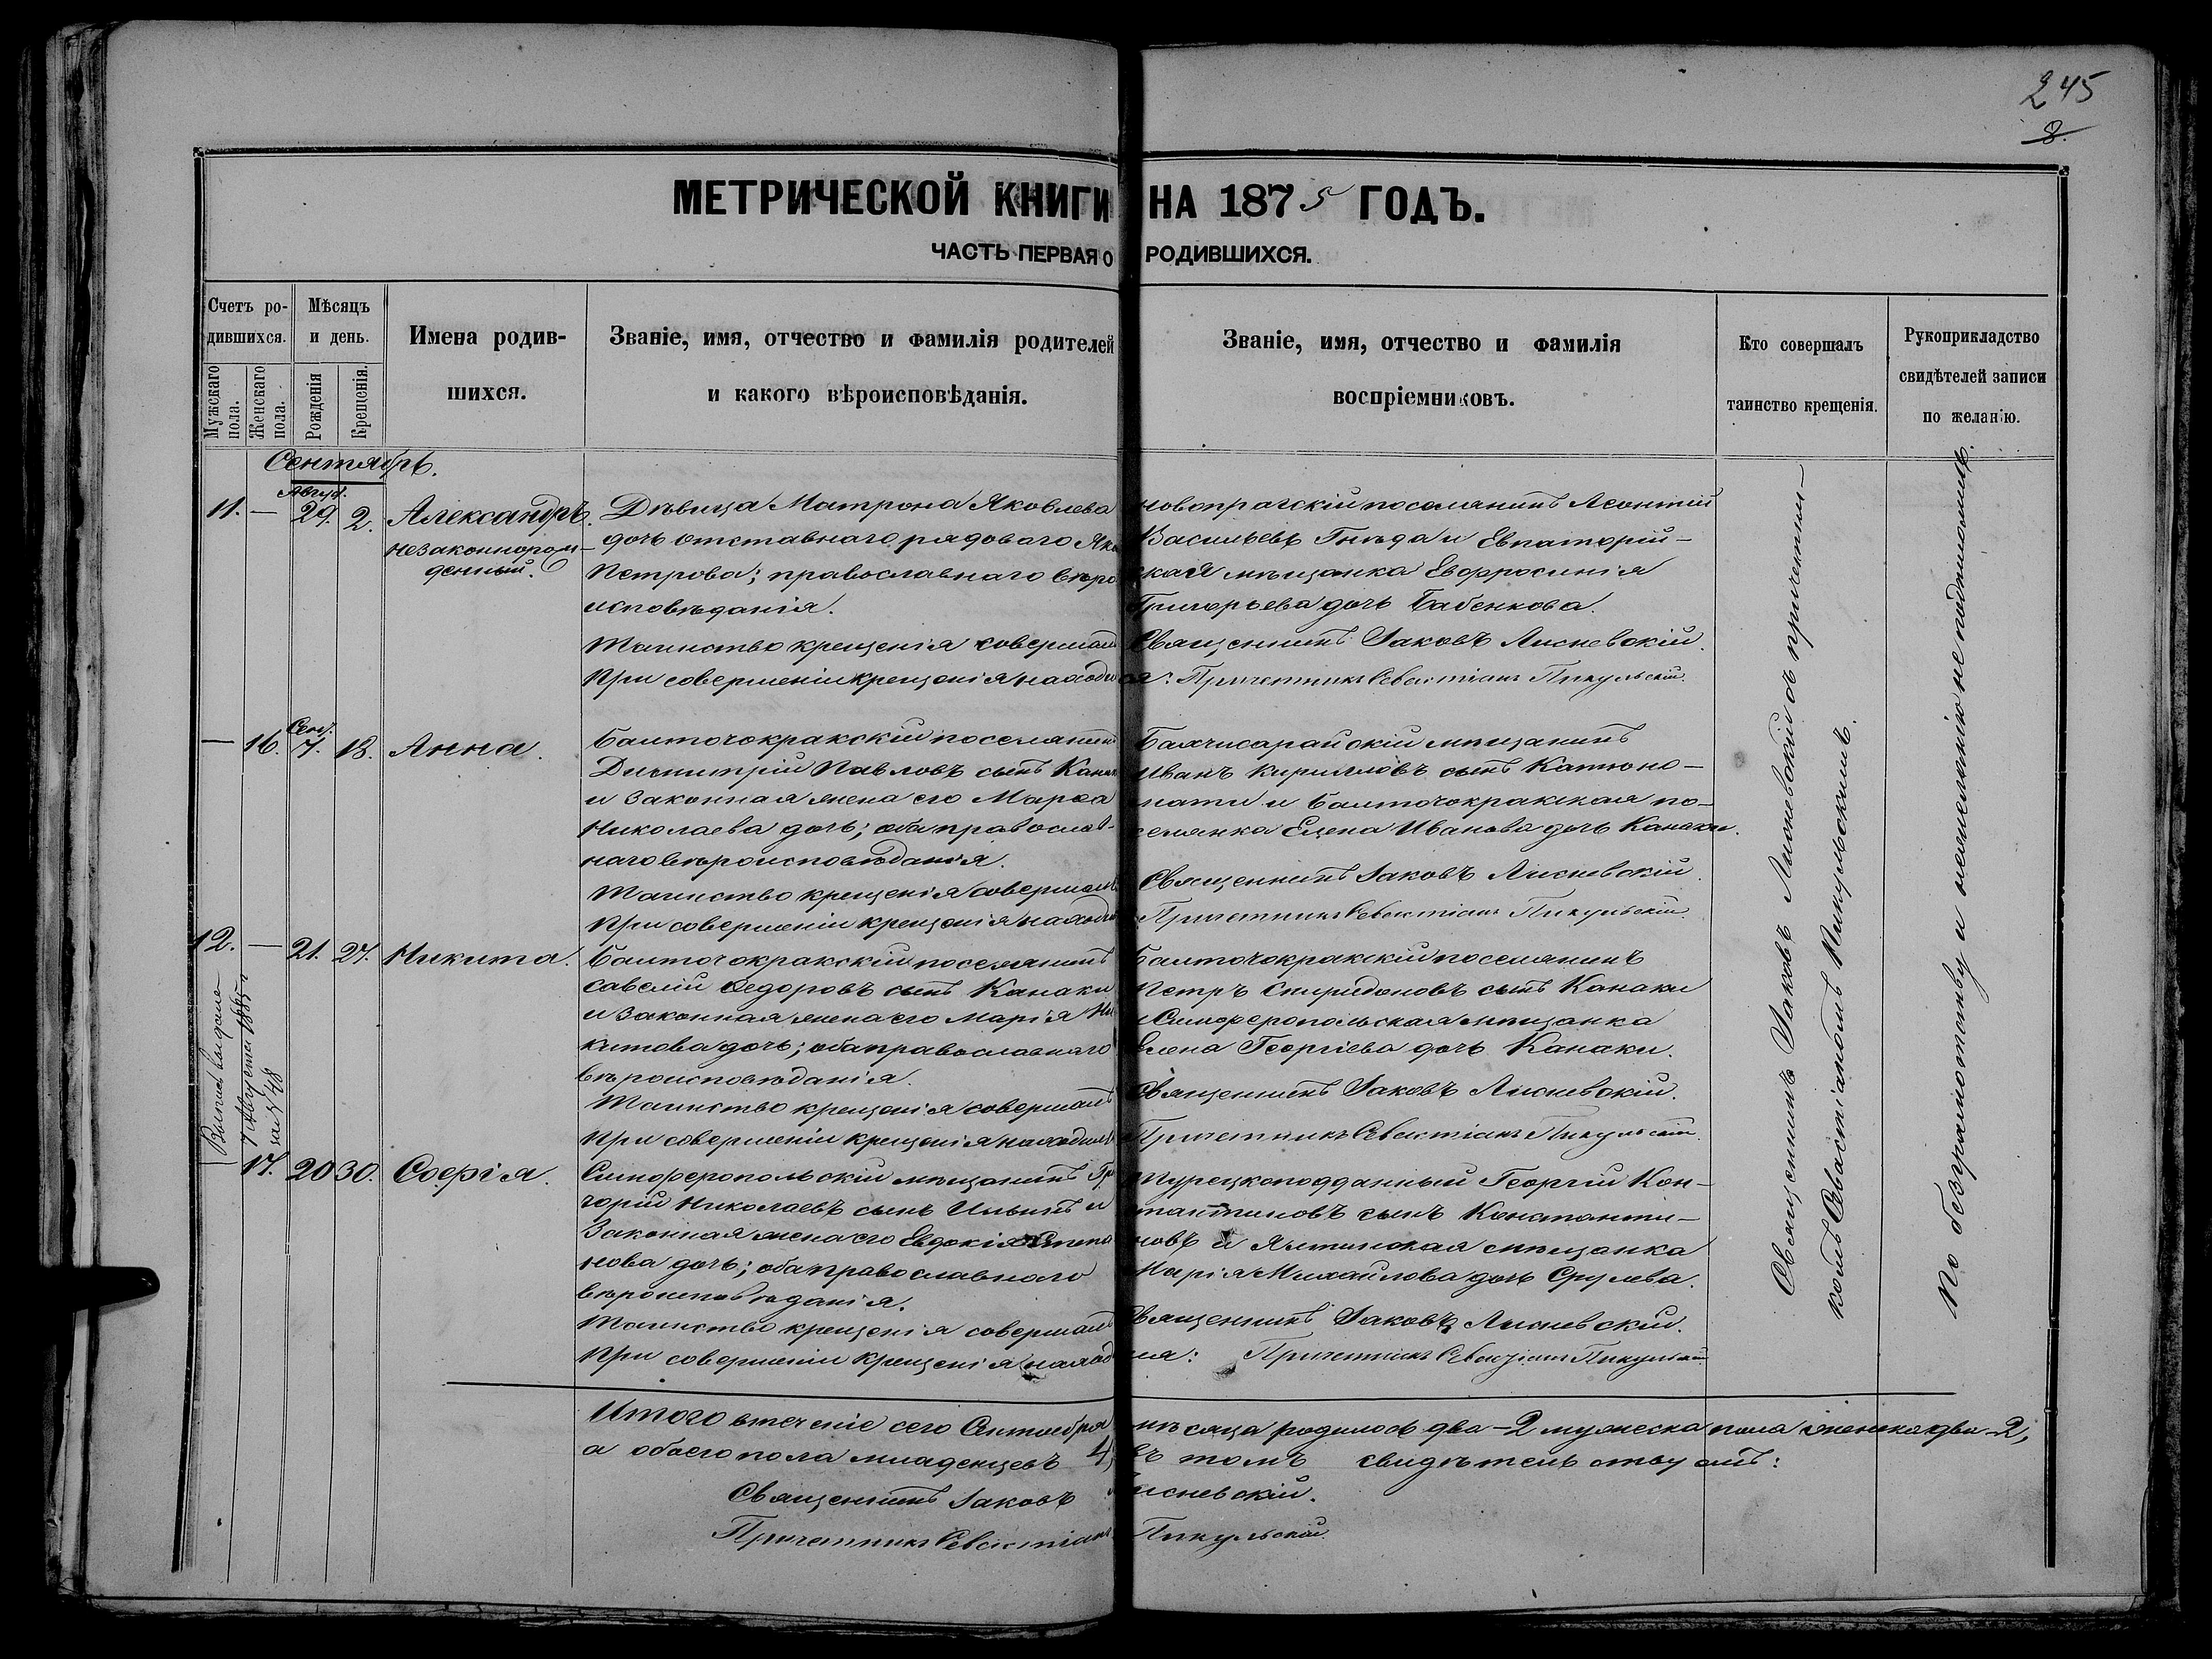 245
8.
МЕТРИЧЕСКОЙ КНИГИ НА 1875 ГОДЪ.
ЧАСТЬ ПЕРВАЯ О РОДИВШИХСЯ.
Счетъ ро-
дившихся.
Мужскаго пола.
Женскаго пола.
Мѣсяцъ
и день.
Рожденія
Крещенія.
Имена родив-
шихся.
Званіе, имя, отчество и фамилія родителей
и какого вѣроисповѣданія.
Званіе, имя, отчество и фамилія
воспріемниковъ.
Кто совершалъ
таинство крещенія.
Рукоприкладство
свидѣтелей записи
по желанію.
Сентябрь.
Авгус.
11. — 29. 2. Александръ.
незаконнорож-
денный.
Дѣвица Матрона Яковлева
дочь отставнаго рядоваго Яко
Петрова; православнаго вѣро
исповѣданія.
Таинство крещенія совершалъ
При совершеніи крещенія находи
новопрагскій поселянинъ Леонтій
Васильевъ Гнѣда и Евпаторій-
ская мѣщанка Евфросинія
Григорьева дочь Бабенкова.
Священникъ Іаковъ Лисневскій.
ся: Причетникъ Севастіанъ Пикульскій.
Сент.
— 16. 7. 18. Анна.
Балточокракскій поселянинъ
Димитрій Павловъ сынъ Канак
и законная жена его Марѳа
Николаева дочь; оба православ-
наго вѣроисповѣданія.
Таинство крещенія совершалъ
При совершеніи крещенія находи
Бахчисарайскій мѣщанинъ
Иванъ Кирилловъ сынъ Катоно-
пати и Балточокракская по-
селянка Елена Иванова дочь Канаки.
Священникъ Іаковъ Лисневскій.
Причетникъ Севастіанъ Пикульскій.
12. — 21. 27. Никита.
Балточокракскій поселянинъ
Савелій Ѳедоровъ сынъ Канаки
и законная жена его Марія Ни
китова дочь; оба православнаго
вѣроисповѣданія.
Таинство крещенія совершалъ
При совершеніи крещенія находилс
Балточокракскій поселянинъ
Петръ Спиридоновъ сынъ Канаки
и Симферопольская мѣщанка
Елена Георгіева дочь Канаки.
Священникъ Іаковъ Лисневскій.
Причетникъ Севастіанъ Пикульскій.
Выпись выдана
7 Августа 1885 г
за № 48
— 17. 20 30. Софія.
Симферопольскій мѣщанинъ Гри
горій Николаевъ сынъ Ильинъ и
законная жена его Евдокія Степа
нова дочь; оба православнаго
вѣроисповѣданія.
Таинство крещенія совершалъ
При совершеніи крещенія наход
Турецкоподданный Георгій Кон-
стантиновъ сынъ Константи-
новъ и Ялтинская мѣщанка
Марія Михайлова дочь Срулева.
Священникъ Іаковъ Лисневскій.
ися: Причетникъ Севастіанъ Пикульскій
Священникъ Іаковъ Лисневскій съ причетни-
комъ Севастіаномъ Пикульскимъ.
По безграмотству и нежеланію не подписались.
Итого втеченіе сего Сентября мѣсяца родилось два-2 мужеска пола женска два-2,
а обоего пола младенцевъ 4, въ томъ свидѣтельствуютъ:
Священникъ Іаковъ Лисневскій.
Причетникъ Севастіанъ Пикульскій.